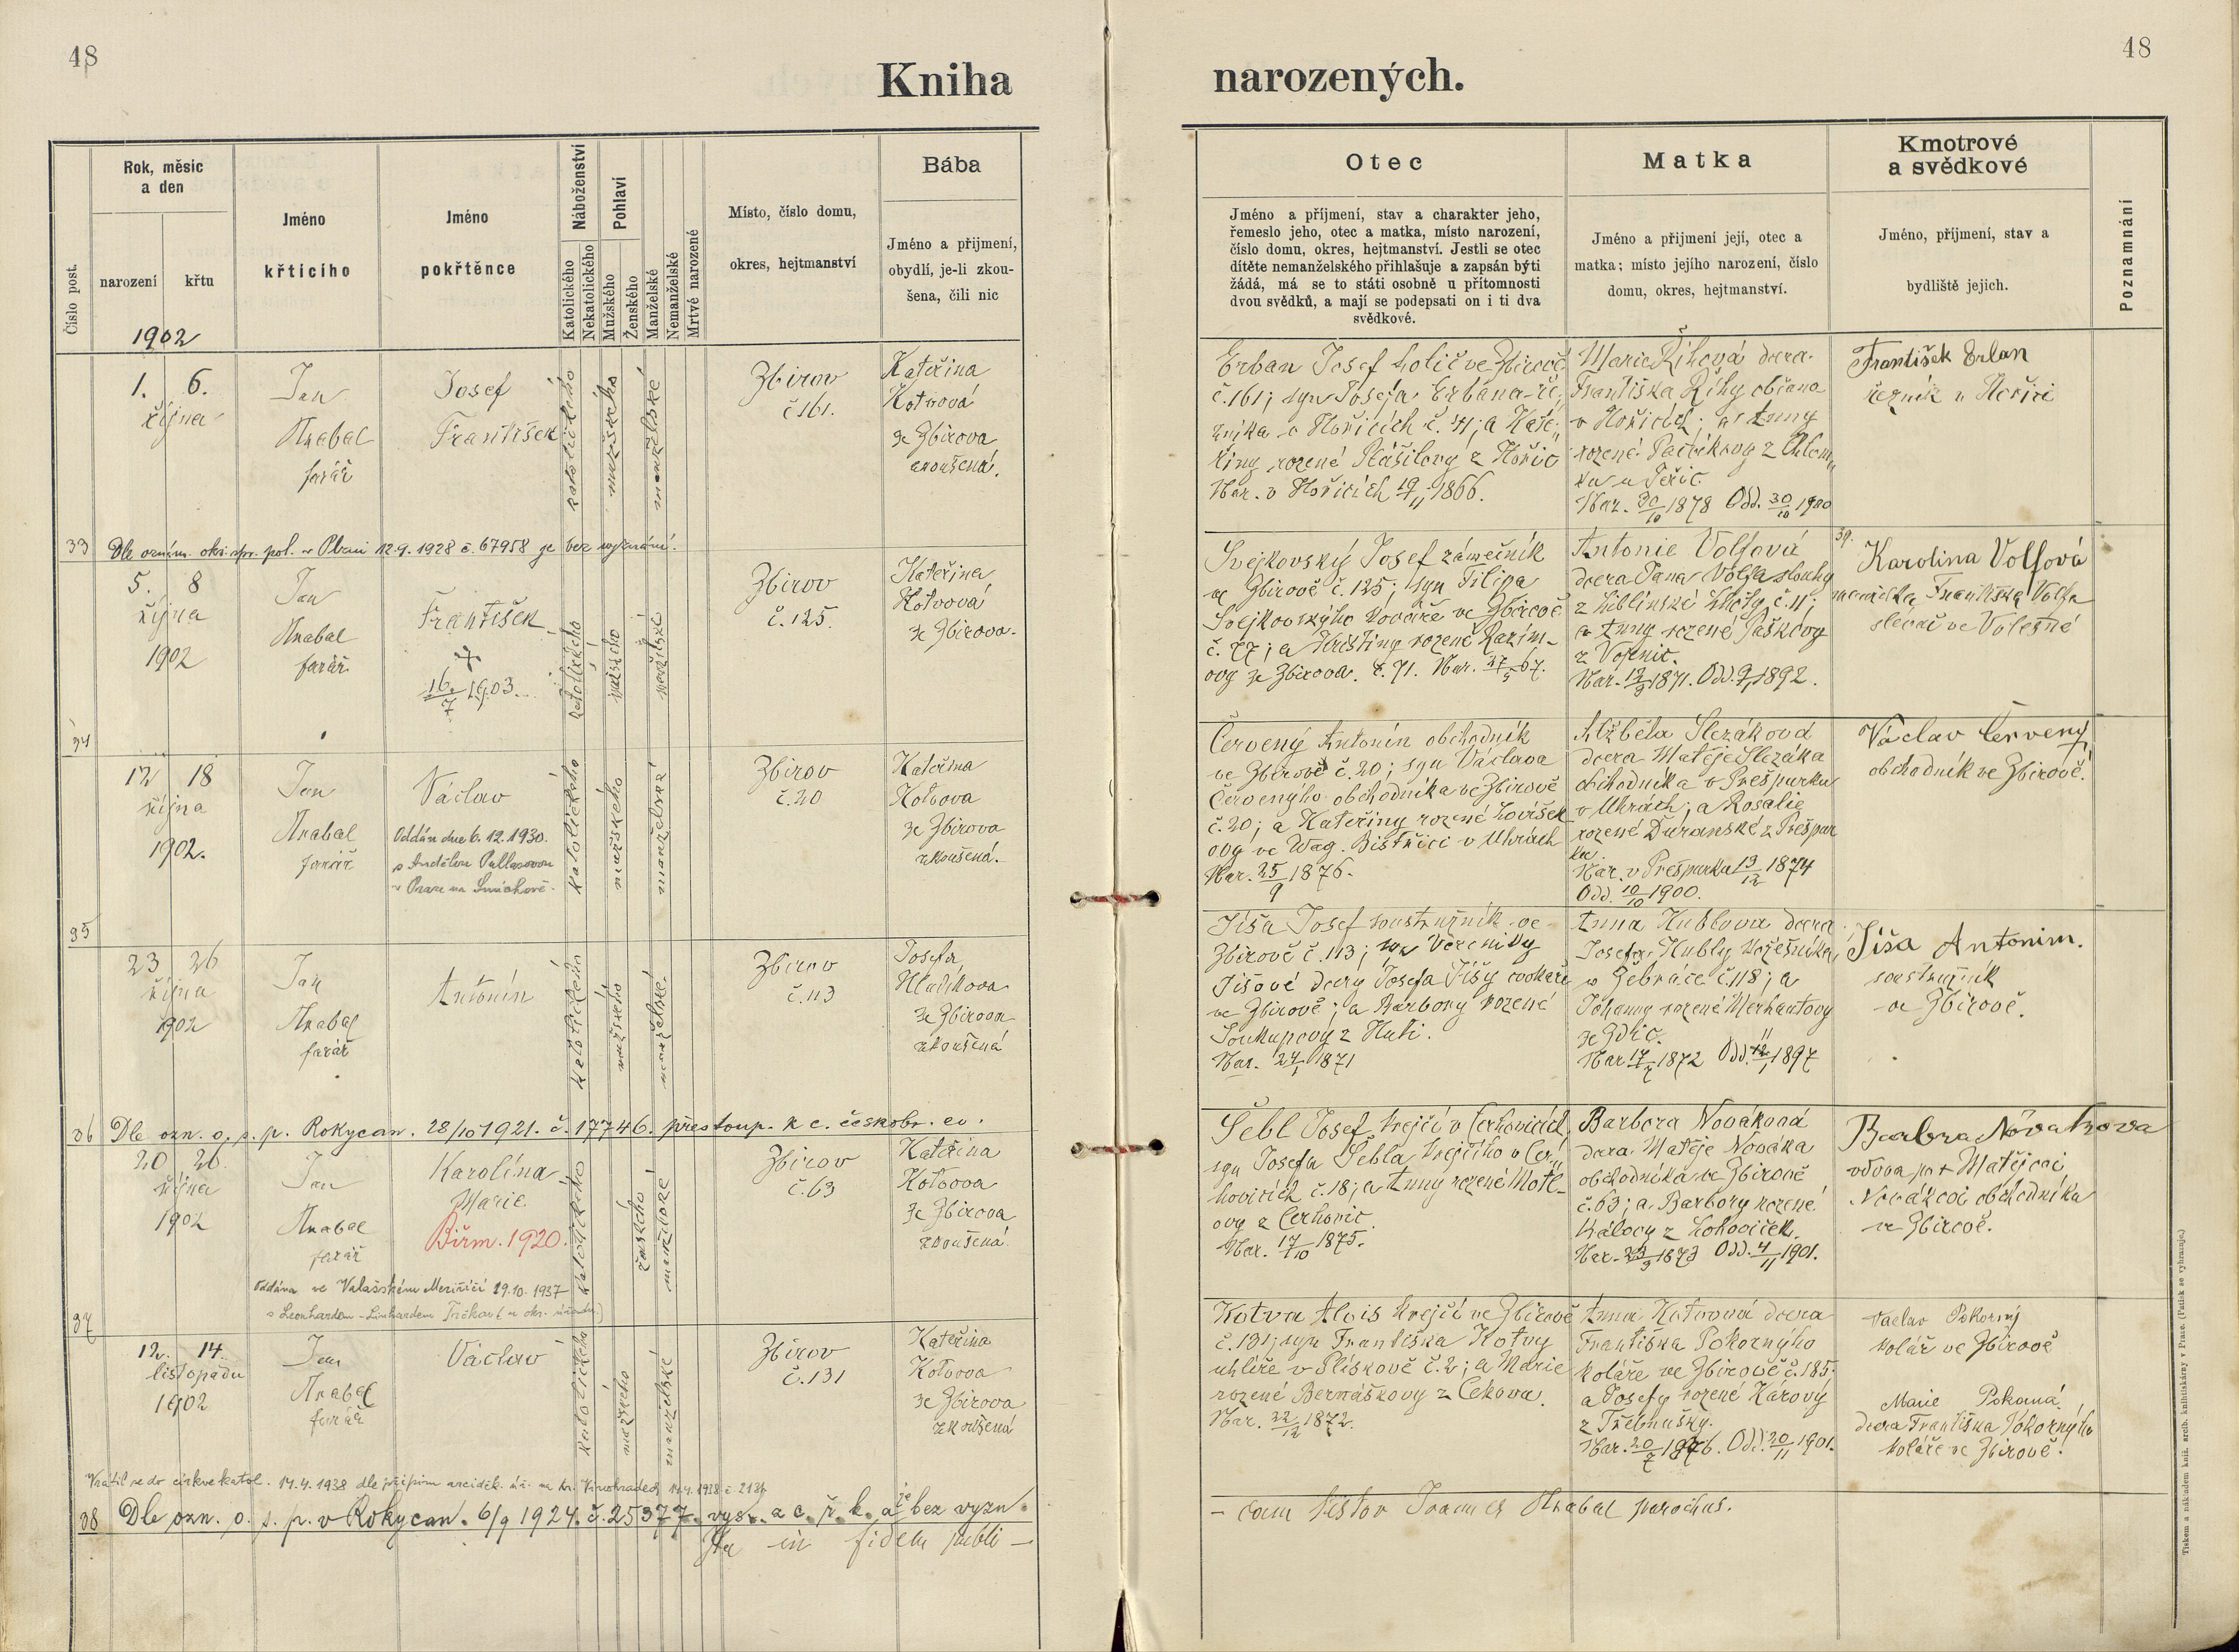 48
Kniha
narozených.
48
Číslo post.
Rok, měsíc
a den
narození
křtu
Jméno
křtícího
Jméno
pokřtěnce
Náboženství
Katolického
Nekatolického
Pohlaví
Mužského
Ženského
Manželské
Nemanželské
Mrtvé narozené
Místo, číslo domu,
okres, hejtmanství
Bába
Jméno a přijmení,
obydlí, je-li zkou-
šena, čili nic
Otec
Jméno a příjmení, stav a charakter jeho,
řemeslo jeho, otec a matka, místo narození,
číslo domu, okres, hejtmanství. Jestli se otec
dítěte nemanželského přihlašuje a zapsán býti
žádá, má se to státi osobně u přítomnosti
dvou svědků, a mají se podepsati on i ti dva
svědkové.
Matka
Jméno a přijmení její, otec a
matka; místo jejího narození, číslo
domu, okres, hejtmanství.
Kmotrové
a svědkové
Jméno, příjmení, stav a
bydliště jejich.
Poznamnání
1902
1. 6.
října
Jan
Hrabal
farář
Josef
František
katolického
mužského
manželské
Zbirov
č 161.
Kateřina
Kotvová
ze Zbirova
zkoušená.
Erban Josef holič ve Zbirově
č. 161; syn Josefa Erbana ře-
zníka v Hořicích č. 41; a Kate-
řiny rozené z Hořic
Nar. v Hořicích 19/11 1866.
Marie Říhová dcera
Františka Říhy občana
v Hořicích; a Anny
rozené z Chlom-
ku u
Nar. 30/10 1878 Odd. 30/10 1900
František Erban
řezník v Hořici
33 Dle oznám. okr. spr. pol. v Plzni 12.9.1928 č. 67958 je bez vyznání.
5. 8
října
1902
Jan
Hrabal
farář
František
16./7 1903.
katolického
mužského
manželské
Zbirov
č. 125.
Kateřina
Kotvová
ze Zbirova.
Svejkovský Josef zámečník
ve Zbirově č. 125; syn Filipa
Svejkovského kováře ve Zbirově
č. 77; a Kristiny rozené Kazím-
ovy ze Zbirova č. 71. Nar. 67.
Antonie Volfová
dcera Jana Volfa sluhy
z Liblínské Lhoty č. 11;
a Anny rozené Paškovy
z Vojenic.
Nar. 1871. Odd. 1892.
Karolina Volfová
manželka Františka Volfa
slevač ve Volešné
34
12 18
října
1902.
Jan
Hrabal
farář
Václav
Oddán dne 6. 12. 1930.
s Andělou
v Praze na Smíchově.
katolického
mužského
manželské
Zbirov
č. 20
Kateřina
Kotvova
ze Zbirova
zkoušená.
Červený Antonín obchodník
ve Zbirově č. 20; syn Václava
Červeného obchodníka ve Zbirově
č. 20; a Kateřiny rozené Lovíšek-
ovy ve Wag. Bistřici v Uhrách
Nar. 25/9 1876.
Alžběta Slezáková
dcera Matěje Slezáka
obchodníka v Prešpurku
v Uhrách; a Rosalie
rozené Ďuranské z Prešpur
ku.
Nar. v Prešpurku 13/12 1874
Odd. 10/10 1900.
Václav Červený
obchodník ve Zbirově.
35
23 26
října
1902
Jan
Hrabal
farář
Antonín
katolického
mužského
manželské
Zbirov
č. 113
Josefa
Hladíkova
ze Zbirova
zkoušená
Jíša Josef soustružník ve
Zbirově č. 113; syn Veroniky
Jíšové dcery Josefa Jíšy cvokaře
ve Zbirově; a Barbory rozené
Soukupovy z Huti.
Nar. 24/1 1871
Anna Hublova dcera
Josefa Hubly kožešníka
v Žebráce č. 118; a
Johanny rozené Merhautovy
ze Zdic.
Nar 17/7 1872 Odd. 1897
Jíša Antonim.
soustružník
ve Zbirově.
36 Dle ozn. o. s. p. Rokycan. 28/10 1921. č. 17746. přestoup. k c. českobr. ev.
20 26.
října
1902
Jan
Hrabal
farář
Karolína
Marie
Biřm. 1920.
katolického
ženského
manželské
Zbirov
č. 63
Kateřina
Kotvova
ze Zbirova
zkoušená.
Šebl Josef krejčí v Cerhovicích
syn Josefa Šebla krejčího v Cer-
hovicích č. 18; a Anny rozené Motl-
ovy z Cerhovic.
Nar. 17/10 1875.
Barbora Nováková
dcera Matěje Nováka
obchodníka ve Zbirově
č. 63; a Barbory rozené
Královy z Lohoviček.
Nar. 23/9 1873 Odd. 4/11 1901.
Barbra Nóvakova
vdova po + Matějovi
Novákovi obchodníku
ve Zbirově.
Oddána ve Valašském Meziříčí 29.10.1937
s Leonhardem - Linhardem
37
12. 14.
listopadu
1902
Jan
Hrabal
farář
Václav
katolického
mužského
manželské
Zbirov
č. 131
Kateřina
Kotvova
ze Zbirova
zkoušená
Kotva Alois krejčí ve Zbirově
č. 131; syn Františka Kotvy
uhlíře v Plískově č. 2; a Marie
rozené Bernáškovy z Čekova.
Nar. 22/12 1872.
Anna Kotvová dcera
Františka Pokorného
koláře ve Zbirově č. 185
a Josefy rozené Károvy
z Třebnušky.
Nar. 20/7 1876. Odd. 20/11 1901.
Václav Pokorný
kolář ve Zbirově
Marie Pokorná.
dcera Františka Pokorného
koláře ve Zbirově.
Vrátil se do církve katol. 14.4.1938 dle přípisu arciděk. úř. na Kr. Vinohradech 14.4.1938 č.
38 Dle ozn. o. s. p. v Rokycan. 6/9 1924. č. 25377. vyst. z c. ř. k. a je bez vyzn.
Ita in fidem publi-
- cam testor Joannes Hrabal parochus.
Tiskem a nákladem kníž. arcib. knihtiskárny v Praze. (Patisk se vyhrazuje.)